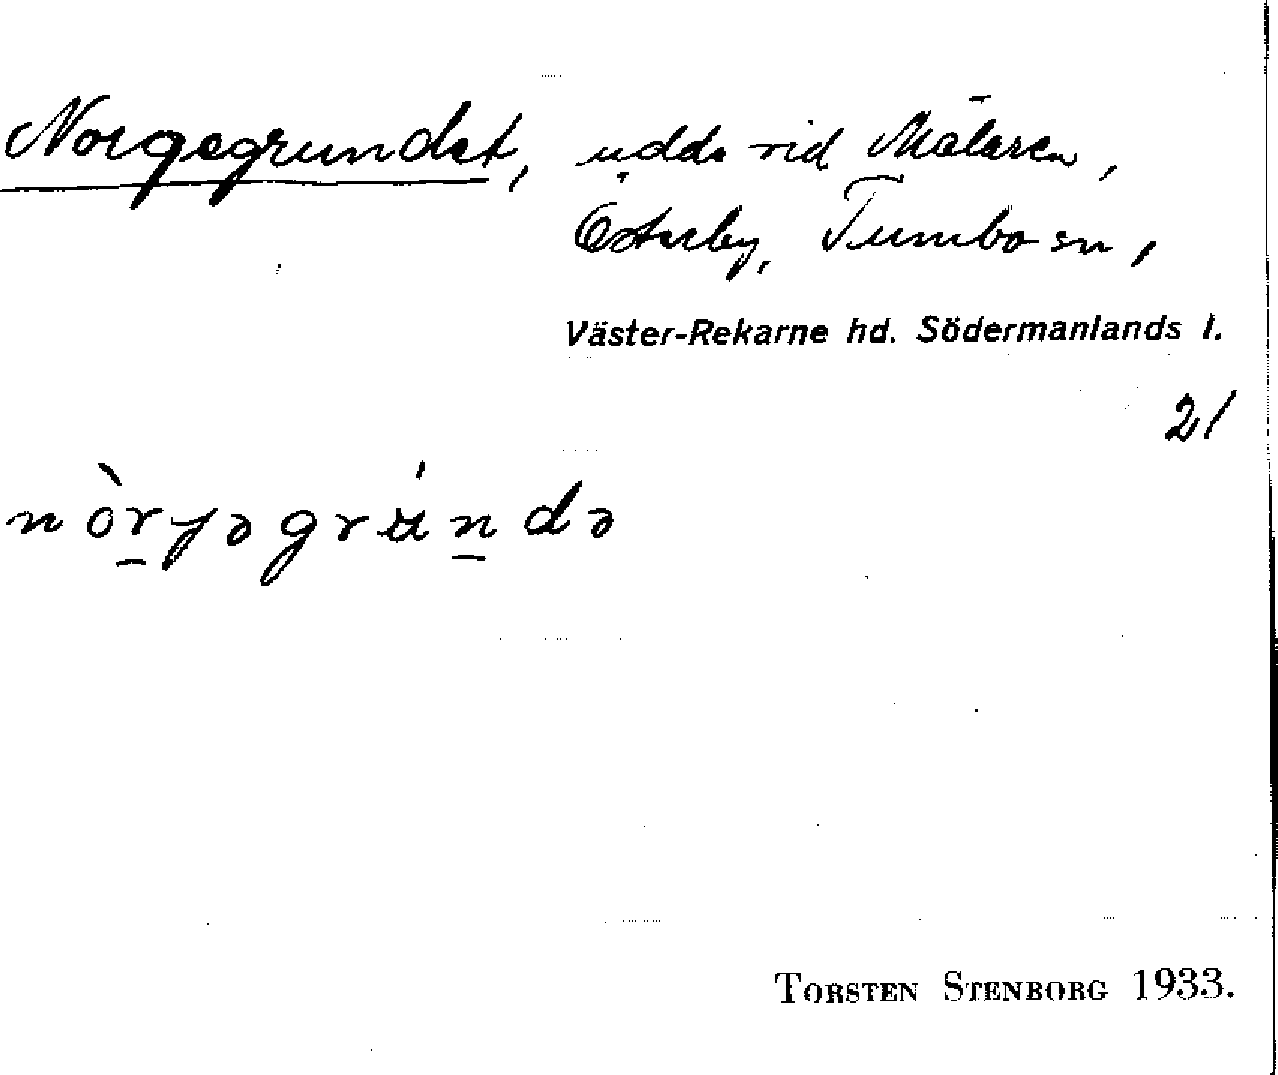 Norgegrundet, udde vid Mälaren,
Österby, Tumbo sn,
Väster-Rekarne hd. Södermanlands l.
21
nòr̠jəgrún̠də
TORSTEN STENBORG 1933.